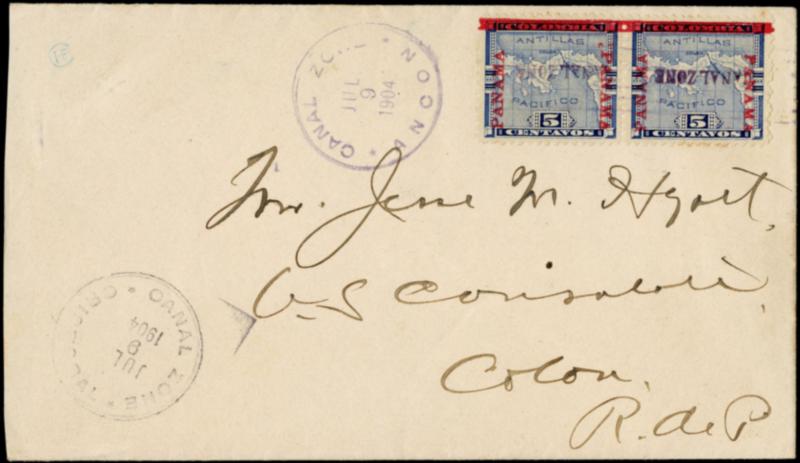 15
CANAL ZONE • ANCON •
JUL
9
1904
COLOMBIA COLOMBIA
ANTILLAS ANTILLAS
PANAMA PANAMA PANAMA PANAMA
CANAL ZONE CANAL ZONE
PACIFICO PACIFICO
5 5
CENTAVOS CENTAVOS
Mr. Jesse M. Hyatt,
U S Consulate,
Colon,
R. de P.
CANAL ZONE •
CRISTOBAL •
JUL
9
1904